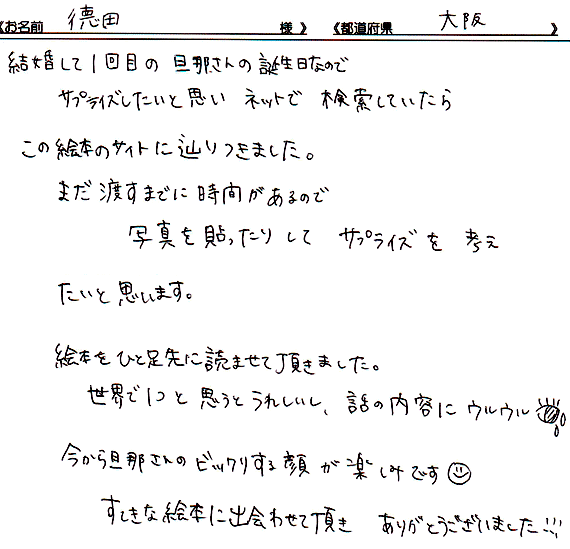 《お名前 德田 様 》 《都道府県 大阪 》
結婚して1回目の旦那さんの誕生日なので
サプライズしたいと思い ネットで 検索していたら
この絵本のサイトに辿りつきました。
まだ渡すまでに時間があるので
写真を貼ったりして サプライズを 考え
たいと思います。
絵本をひと足先に読ませて頂きました。
世界で1つと思うとうれしいし、話の内容にウルウル
今から旦那さんのビックリする顔が楽しみです
すてきな絵本に出会わせて頂き ありがとうございました!!!